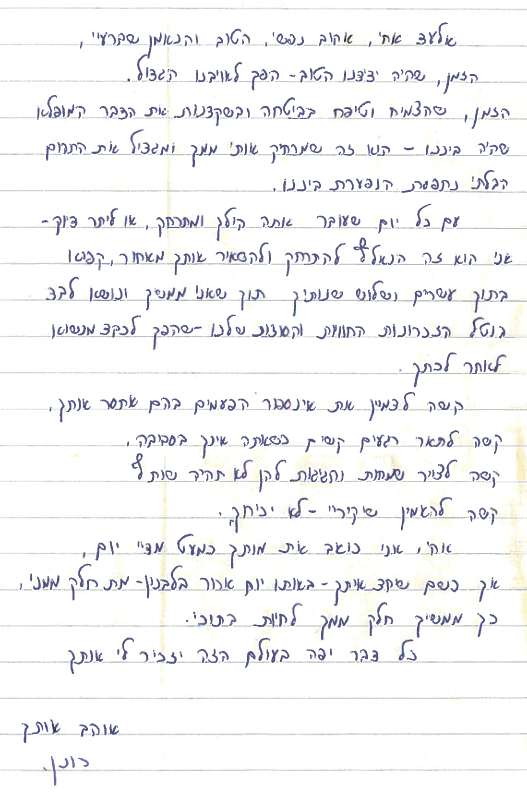 אלעד אחי, אהוב נפשי, הטוב והנאמן שברעיי,
הזמן, שהיה ידידנו הטוב - הפך לאויבנו הגדול.
הזמן, שהצמיח וטיפח בביטחה ובשקדנות את הדבר המופלא
שהיה ביננו - הוא זה שמרחיק אותי ממך ומגדיל את התהום
הבלתי נתפסת הנפערת ביננו.
עם כל יום שעובר אתה הולך ומתרחק, או ליתר דיוק -
אני הוא זה הנאלץ להתרחק ולהשאיר אותך מאחור, קפוא
בתוך עשרים ושלוש שנותיך תוך שאני ממשיך ונושא לבד
בנטל הזכרונות החוויות והסודות שלנו - שהפך לכבד מנשוא
לאחר לכתך.
קשה לדמיין את אינספור הפעמים בהם אחסר אותך,
קשה לתאר רגעים קשים כשאתה אינך בסביבה,
קשה לצייר שמחות וחגיגות להן לא תהיה שותף
קשה להאמין שיקיריי - לא יכירוך.
אחי, אני כואב את מותך כמעט מדיי יום,
אך כשם שחד איתך - באותו יום ארור בלבנון - מת חלק ממני,
כך ממשיך חלק ממך לחיות בתוכי.
כל דבר יפה בעולם הזה יזכיר לי אותך
אוהב אותך
רונן.